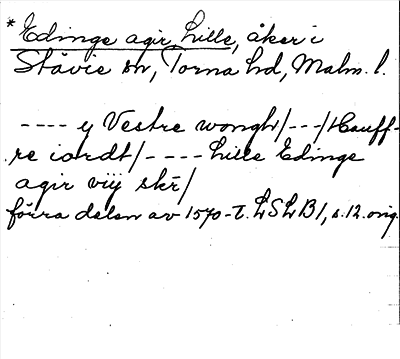 *Edinge agir, Lille, åker i
Stävie sn, Torna hd, Malm. l.
---- y Vestre wongh/---/Hauff-
re iordt/---- Lille Edinge
agir viij skr/
förra delen av 1570-t. LSLB1, s.12. orig.